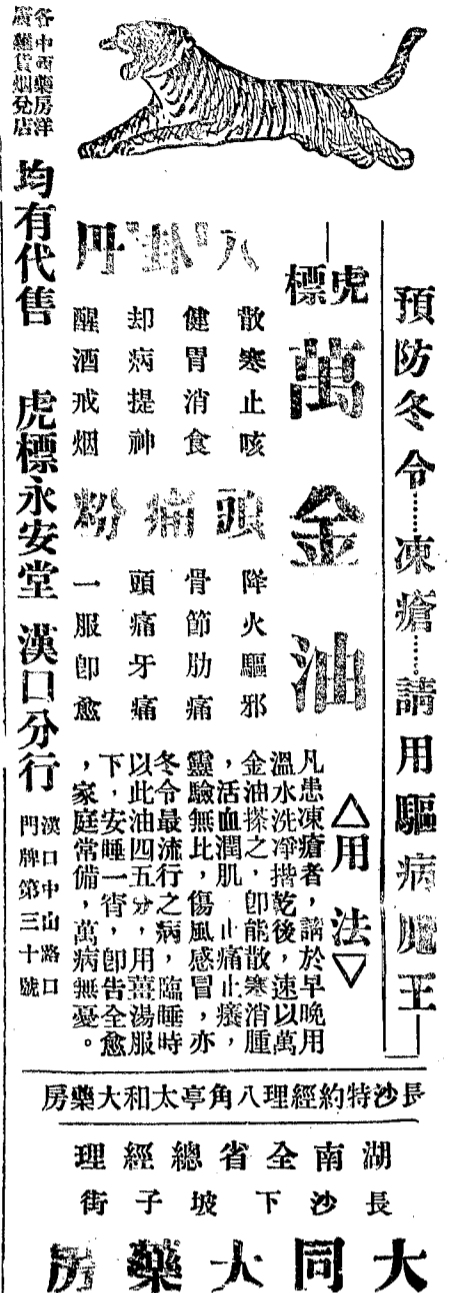 預防冬令……凍瘡……請用驅病魔王
虎標
萬金油
△用法▽
凡患凍瘡者,請於早晚用
溫水洗凈揩乾後,速以萬
金油搽之,卽能散寒消腫
,活血潤肌,止痛止癢,
靈驗無比,傷風感冒,亦
冬令最流行之病,臨睡時
以此油四五分,用薑湯服
下,安睡一宵,卽告全愈
,家庭常備,萬病無憂。
八卦丹
散寒止咳
健胃消食
却病提神
醒酒戒烟
頭痛粉
降火驅邪
骨節肋痛
頭痛牙痛
一服卽愈
各中西藥房洋
廣雜貨烟兌店
均有代售
虎標永安堂 漢口分行
漢口中山路口
門牌第三十號
長沙特約經理八角亭太和大藥房
湖南全省總經理
長沙下坡子街
大同大藥房